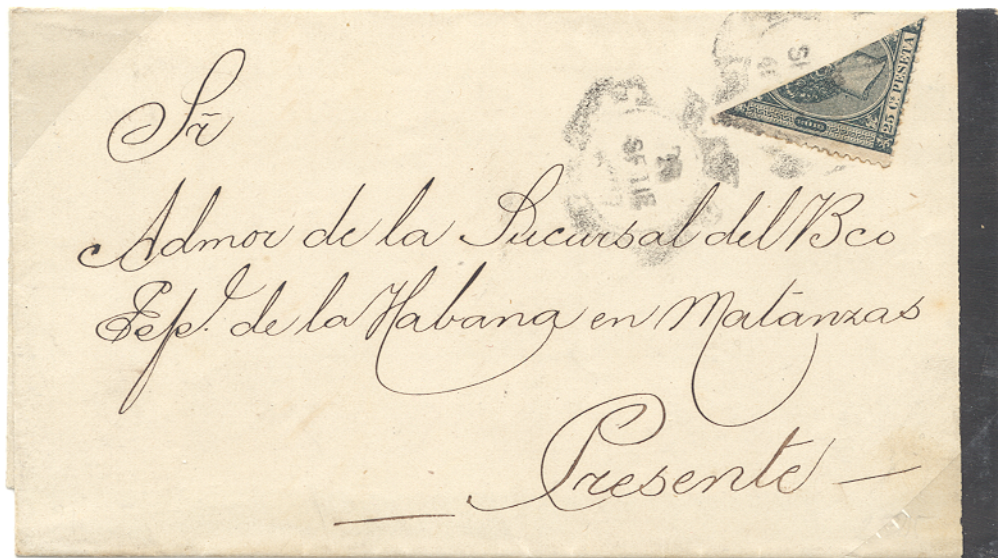 Sr
Admor de la Sucursal del Bco
Esp.l de la Habana en Matánzas
Presente
25 Cs PESETA